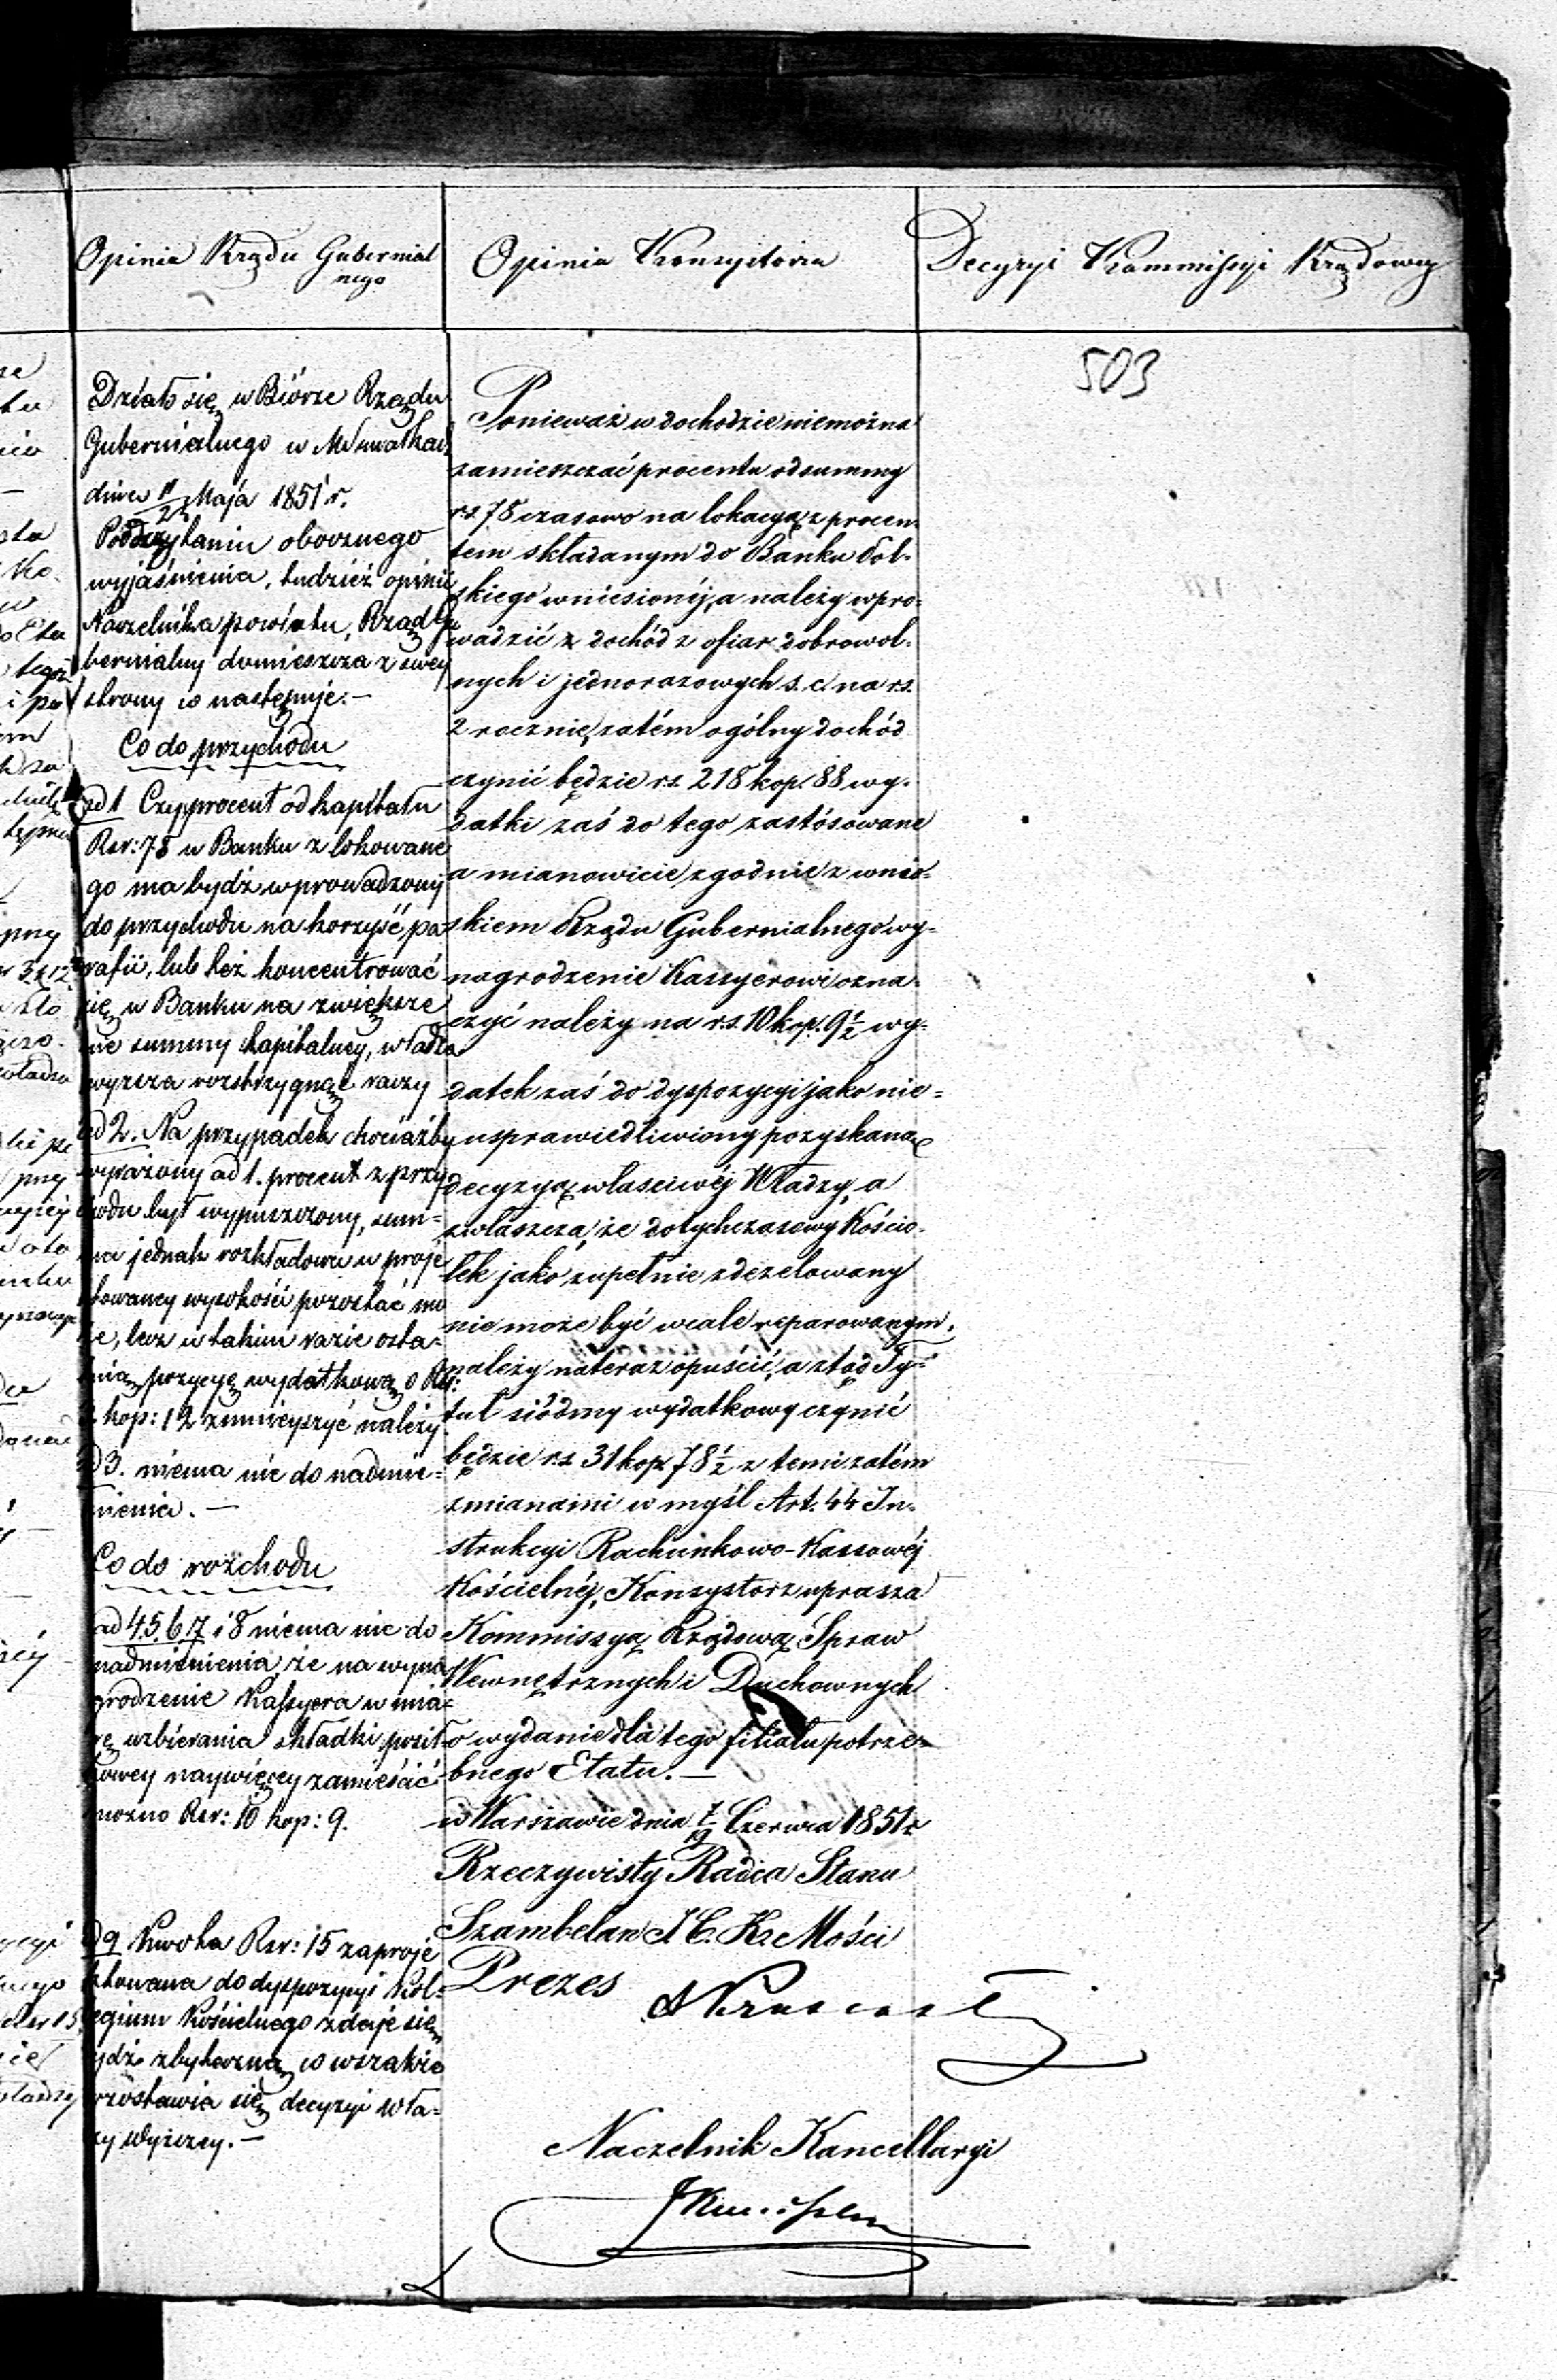 Opinia Rządu Gubernial
nego
Działo się w Biórze Rządu
Gubernialnego w M Suwałkach
dnia 11 Maja 1851 r.
Po odczytaniu obocznego
wyjaśnienia, tudzież opinii
Naczelnika powiatu, Rząd Gu
bernialny domieszcza z swey
strony co następuje.—
Co do przychodu
ad 1 Czy procent od kapitału
Rsr: 78 w Banku zlokowane
go ma bydź wprowadzony
do przychodu na korzyść pa
rafii, lub też koncentrować
się w Banku na zwiększe
nie summy kapitalney, władza
wyższa rozstrzygnąć raczy
ad 2. Na przypadek chociażby
wyrażony ad 1. procent z przy
chodu był wypuszczony, sum=
ma jednak rozkładowa w proje
ktowaney wysokości pozostać mo
że, lecz w takim razie osta=
tnią pozycyę wydatkową o Rsr:
kop: 12 zmnieyszyć należy
ad 3. niema nic do nadmie=
nienia.—
Co do rozchodu
ad 4.5.6.7 i 8 niema nic do
nadmienienia, że na wyna
grodzenie Kassyera w mia=
rę uzbierania składki posił
kowey naywięcey zamieścić
można Rsr: 10 kop: 9.
ad 9 Kwota Rsr: 15 zaproje
ktowana do dyspozycyi Kol=
legium Kościelnego zdaje się
bydź zbyteczną, co wszakże
pozostawia się decyzyi wła=
dzy wyższey.—
Opinia Konsystorza
Ponieważ w dochodzie niemożna
zamieszczać procentu od summy
rs. 78 czasowo na lokacyą z procen
tem składanym do Banku Pol=
skiego wniesionéj, a należy wpro=
wadzić dochód z ofiar dobrowol=
nych i jednorazowych s. c. na rs.
2 rocznie, zatém ogólny dochód
czynić będzie rs. 218 kop. 88 wy=
datki zaś do tego zastósowane
a mianowicie, zgodnie z wnio=
skiem Rządu Gubernialnego wy=
nagrodzenie Kassyerowi ozna=
czyć należy na rs. 10 kop. 9½ wy=
datek zaś do dyspozycyi jako nie=
usprawiedliwiony pozyskaną
decyzyą właściwéj Władzy, a
zwłaszcza, że dotychczasowy Kościo=
łek jako zupełnie zdezelowany
nie może być wcale reparowanym,
należy nateraz opuścić, a ztąd Ty=
tuł siódmy wydatkowy czynić
będzie rs. 31 kop 78½ z temi zatém
zmianami w myśl Art. 44 In=
strukcyi Rachunkowo-Kassowéj
Kościelnéj, Konsystorz uprasza
Kommissyą Rządową Spraw
Wewnętrznych i Duchownych
o wydanie dla tego filiału potrze=
bnego Etatu.—
w Warszawie dnia 7/19 Czerwca 1851 r.
Rzeczywisty Radca Stanu
Szambelan J. C. Kr. Mości
Prezes
Naczelnik Kancellaryi
Decyzyi Kommissyi Rządowey
503